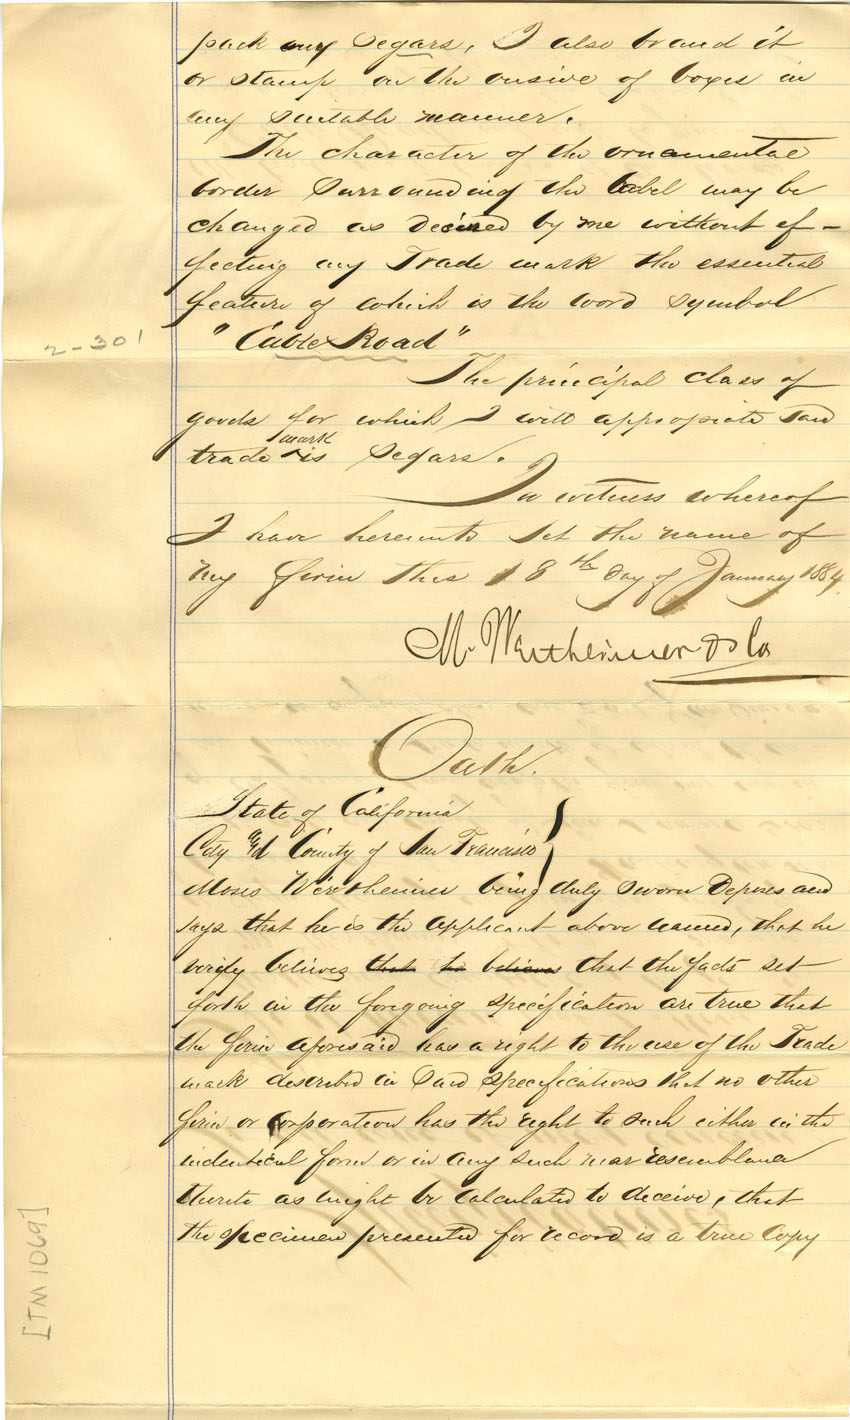 pack my Segars, I also brand it
or stamp on the outside of boxes in
any suitable manner.
The character of the ornamental
border surrounding the label may be
changed as desired by me without ef-
fecting my Trade mark the essential
feature of which is the word symbol
"Cable Road"
2-301
The principal class of
goods for which I will appropiate said
trade mark is Segars.
In witness whereof
I have hereunto set the name of
my firm this 18th Day of January 1884.
M. Wertheimer & Co
Oath.
State of California
City and County of San Francisco
Moses Wertheimer being duly sworn Deposes and
says that he is the applicant above named, that he
verily believes that he believes that the facts set
forth in the foregoing specification are true that
the firm aforesaid has a right to the use of the Trade
mark described in said specifications that no other
firm or corporation has the right to such either in the
indentical form or in any such near resemblance
thereto as might be calculated to deceive, that
the specimen presented for record is a true Copy
[TM 1069]